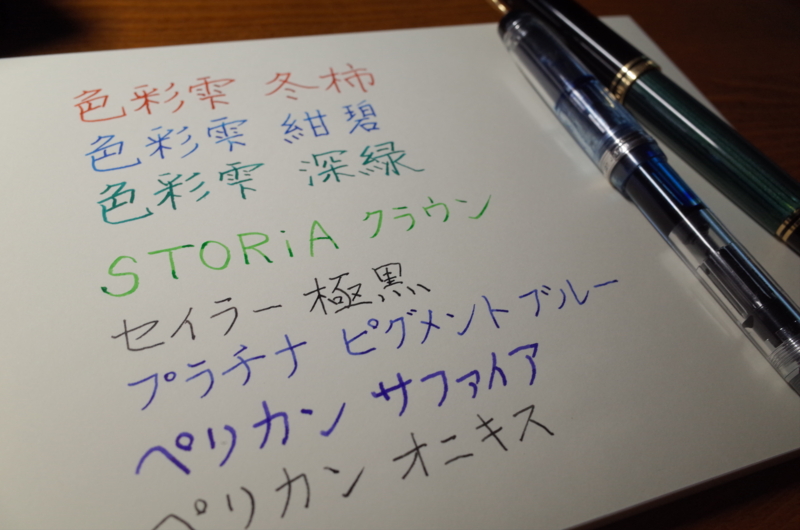 色彩雫 冬柿
色彩雫 紺碧
色彩雫 深緑
STORiA クラウン
セイラー 極黒
プラチナ ピグメントブルー
ペリカン サファイア
ペリカン オニキス